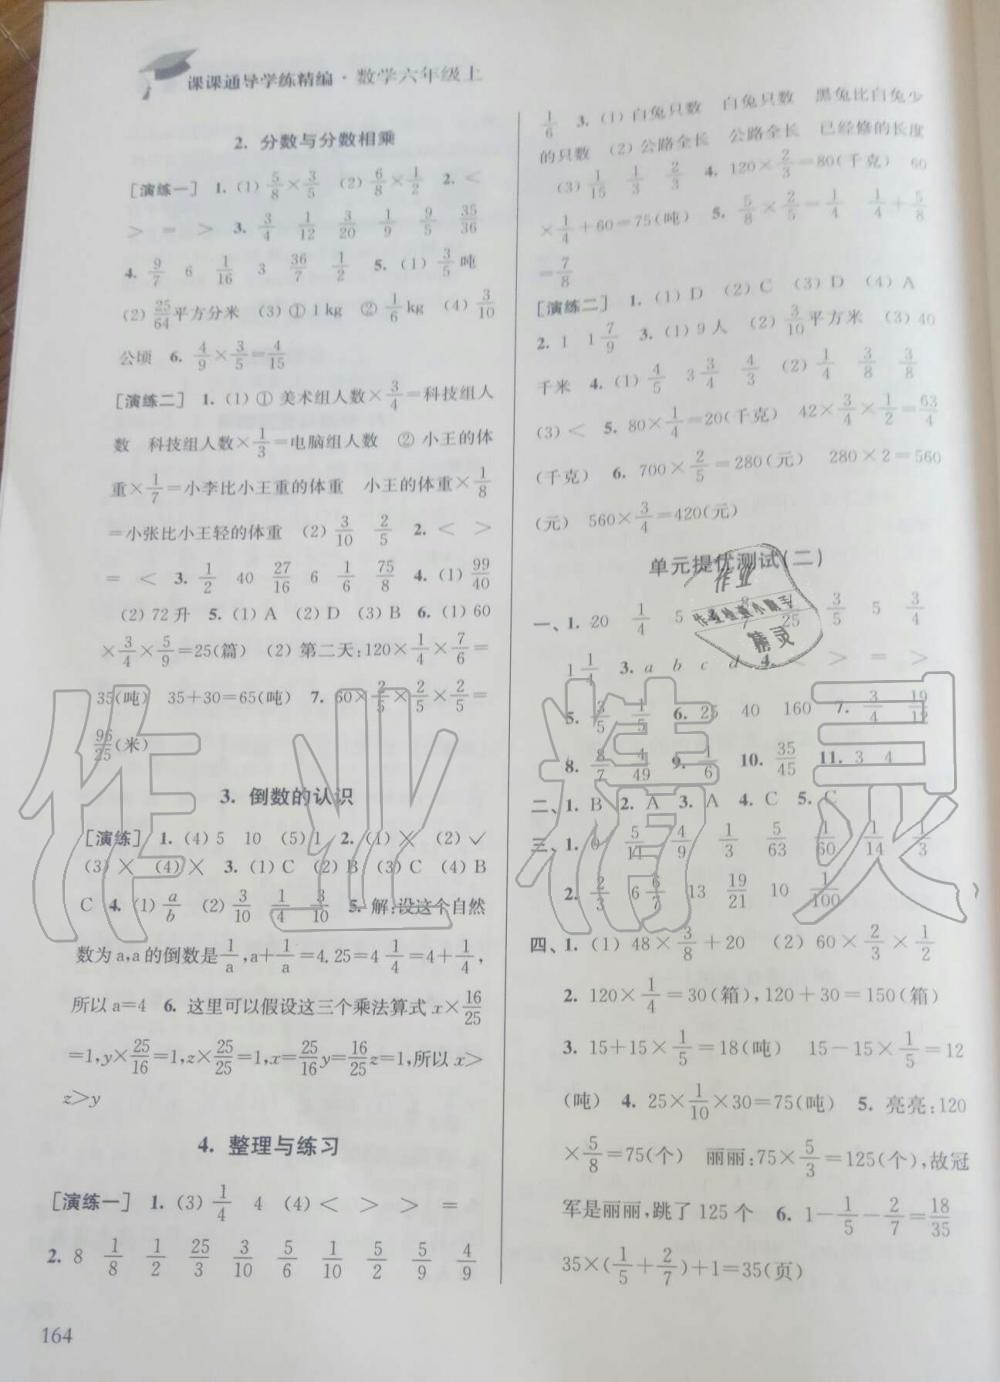 课课通导学练精编·数学六年级上
2. 分数与分数相乘
[演练一] 1. (1) 5/8×3/5 (2) 6/8×1/2 2. <
> = > 3. 3/4 1/12 3/20 1/9 9/5 35/36
4. 9/7 6 1/16 3 36/7 1/2 5. (1) 3/5吨
(2) 25/64平方分米 (3) ① 1 kg ② 1/6 kg (4) 3/10
公顷 6. 4/9×3/5=4/15
[演练二] 1. (1) ① 美术组人数×3/4=科技组人
数 科技组人数×1/3=电脑组人数 ② 小王的体
重×1/7=小李比小王重的体重 小王的体重×1/8
=小张比小王轻的体重 (2) 3/10 2/5 2. < >
= < 3. 1/2 40 27/16 6 1/6 75/8 4. (1) 99/40
(2) 72升 5. (1) A (2) D (3) B 6. (1) 60
×3/4×5/9=25(篇) (2) 第二天:120×1/4×7/6=
35(吨) 35+30=65(吨) 7. 60×2/5×2/5×2/5=
96/25(米)
3. 倒数的认识
[演练] 1. (4) 5 10 (5) 1 2. (1) × (2) ✓
(3) × (4) × 3. (1) C (2) B (3) C (4) B
C 4. (1) a/b (2) 3/10 1/4 3/10 5. 解:设这个自然
数为a,a的倒数是1/a,a+1/a=4.25=4 1/4=4+1/4,
所以a=4 6. 这里可以假设这三个乘法算式x×16/25
=1,y×25/16=1,z×25/25=1,x=25/16 y=16/25 z=1,所以x>
z>y
4. 整理与练习
[演练一] 1. (3) 1/4 4 (4) < > > =
2. 8 1/8 1/2 25/3 3/10 5/6 1/10 5/2 5/9 4/9
164
1/6 3. (1) 白兔只数 白兔只数 黑兔比白兔少
的只数 (2) 公路全长 公路全长 已经修的长度
(3) 1/15 1/3 2/3 4. 120×2/3=80(千克) 60
×1/4+60=75(吨) 5. 5/8×2/5=1/4 1/4+5/8
=7/8
[演练二] 1. (1) D (2) C (3) D (4) A
2. 1 1 7/9 3. (1) 9人 (2) 3/10平方米 (3) 40
千米 4. (1) 4/5 3 3/4 4/3 (2) 1/4 3/8 3/8
(3) < 5. 80×1/4=20(千克) 42×3/4×1/2=63/4
(千克) 6. 700×2/5=280(元) 280×2=560
(元) 560×3/4=420(元)
单元提优测试(二)
一、1. 20 1/4 5 25 3/5 5 3/4
1 1/4 3. a b c d 4. < > = >
5. 3/5 1/5 6. 25 40 160 7. 3/4 19/12
8. 8/7 4/49 9. 1/6 10. 35/45 11. 3 4
二、1. B 2. A 3. A 4. C 5. C
三、1. 0 5/14 4/9 1/3 5/63 1/60 1/14 1/3
2. 2/3 6 6/7 13 19/21 10 1/100
四、1. (1) 48×3/8+20 (2) 60×2/3×1/2
2. 120×1/4=30(箱),120+30=150(箱)
3. 15+15×1/5=18(吨) 15-15×1/5=12
(吨) 4. 25×1/10×30=75(吨) 5. 亮亮:120
×5/8=75(个) 丽丽:75×5/3=125(个),故冠
军是丽丽,跳了125个 6. 1-1/5-2/7=18/35
35×(1/5+2/7)+1=35(页)
作业
作业检查小助手
精灵
作业精灵